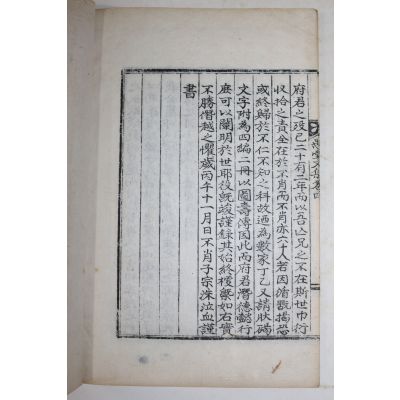 府君之歿已二十有二年而以吾亾兄之不在斯世巾衍
收拾之責全在於不肖而不肖亦六十人若因循翫愒恐
或終歸於不仁不知之科故迺為數家丁乙又請狀碣
文字附為四編二冊以圖壽傳因此而府君潛德懿行
庶可以闡明於世耶役旣竣謹錄其始終梗槩如右實
不勝僭越之懼歲丙午十一月日不肖子宗洙泣血謹
書